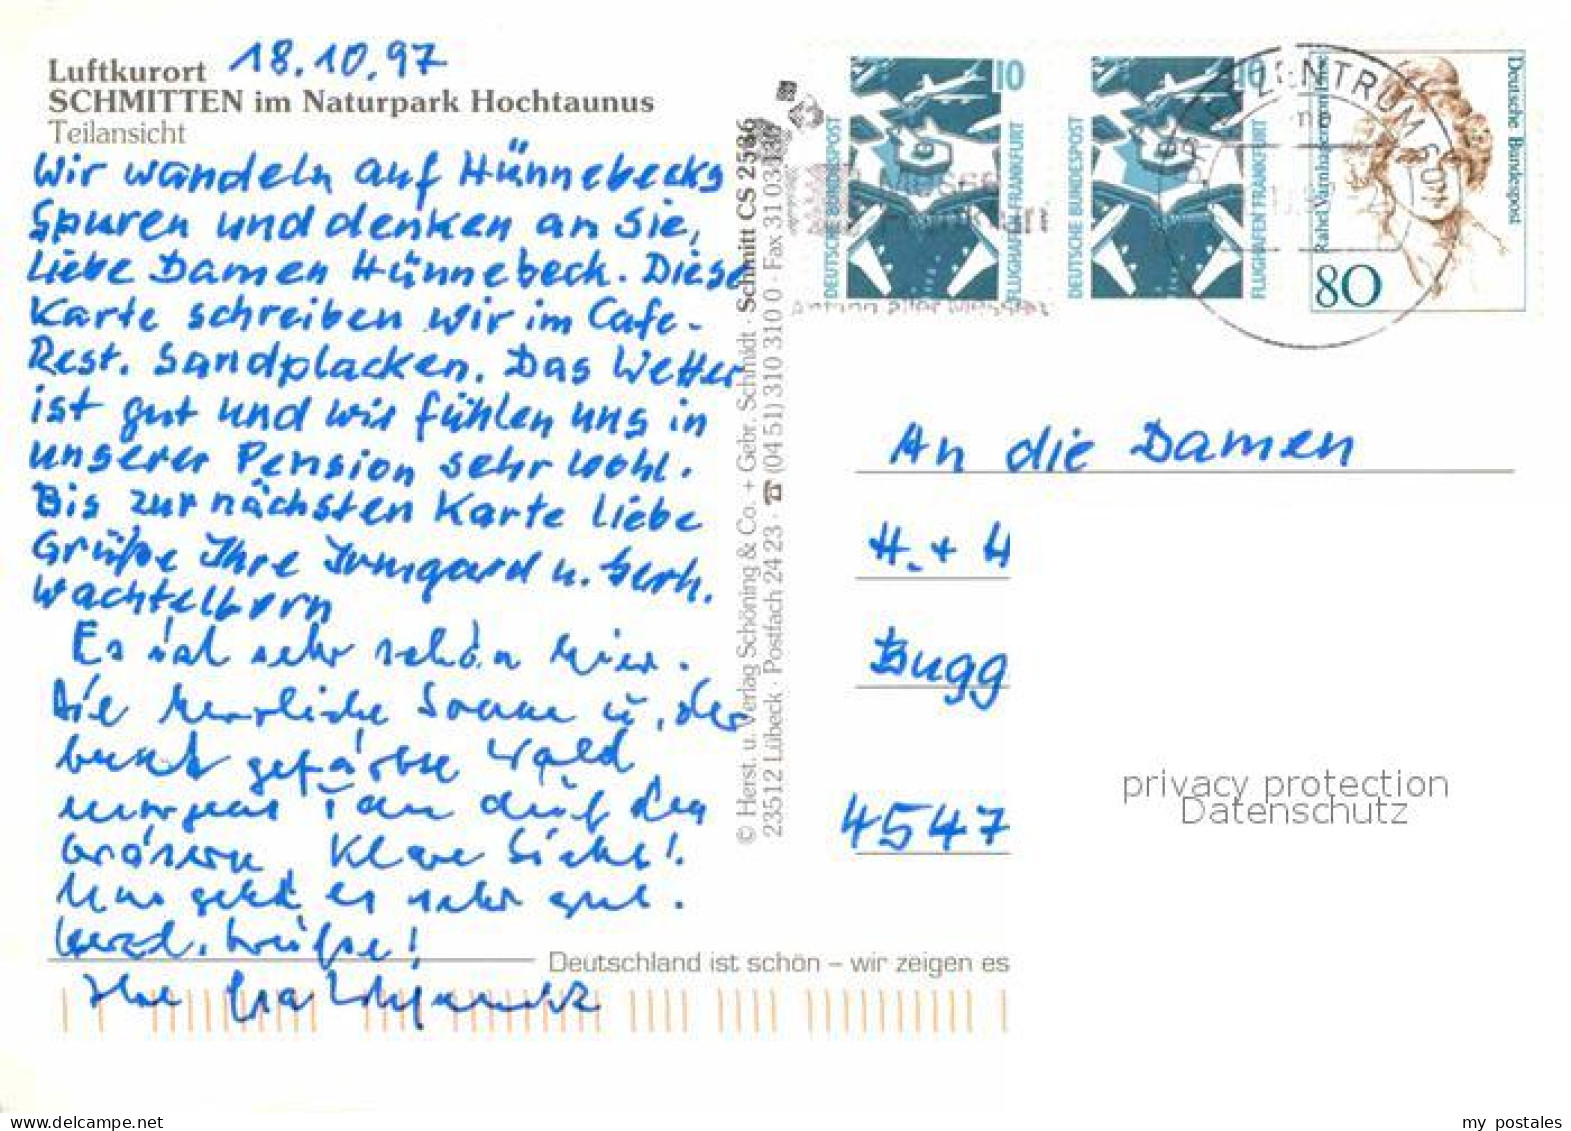 Luftkurort 18.10.97
SCHMITTEN im Naturpark Hochtaunus
Teilansicht
Wir wandeln auf Hünnebecks
Spuren und denken an Sie,
Liebe Damen Hünnebeck. Diese
Karte schreiben wir im Cafe-
Rest. Sandplacken. Das Wetter
ist gut und wir fühlen uns in
unserer Pension sehr wohl.
Bis zur nächsten Karte liebe
Grüße Ihre Irmgard u. Gerh.
Wachtelborn
Es ist sehr schön hier.
Die herrliche Sonne u. der
bunt gefärbte Wald
auf den
Gräsern, Klare Sicht!
Uns geht es sehr gut.
herzl. Grüße!
Ihre
© Herst. u. Verlag Schöning & Co. + Gebr. Schmidt · Schmitt CS 2536
23512 Lübeck · Postfach 24 23 · ☎ (04 51) 310 310 0 · Fax 31 03 130
Deutschland ist schön – wir zeigen es
10
DEUTSCHE BUNDESPOST
FLUGHAFEN FRANKFURT
10
DEUTSCHE BUNDESPOST
FLUGHAFEN FRANKFURT
Deutsche Bundespost
80
An die Damen
H. + H
Bugg
4547
privacy protection
Datenschutz
my postales